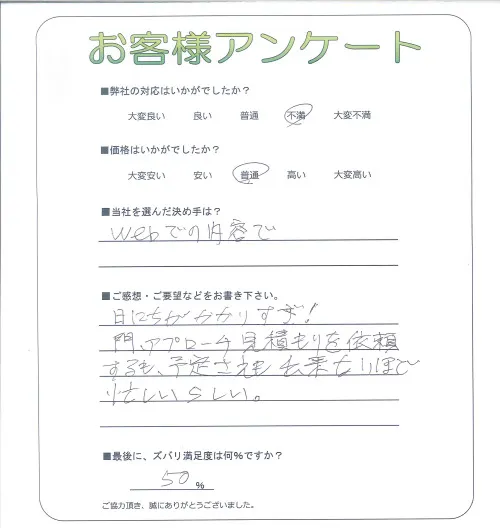 お客様アンケート
■弊社の対応はいかがでしたか？
大変良い 良い 普通 不満 大変不満
■価格はいかがでしたか？
大変安い 安い 普通 高い 大変高い
■当社を選んだ決め手は？
Webでの内容で
■ご感想・ご要望などをお書き下さい。
日にちがかかりすぎ！
門、アプローチ見積もりを依頼
するも、予定さえも出来ないほど
忙しいらしい。
■最後に、ズバリ満足度は何％ですか？
50 %
ご協力頂き、誠にありがとうございました。